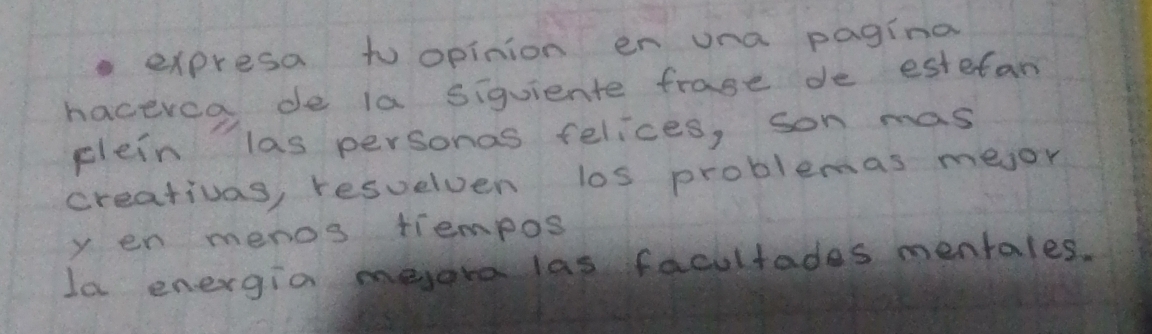 • expresa tu opinion en una pagina
hacerca de la siguiente frase de estefan
klein "las personas felices, son mas
creativas, resuelven los problemas mejor
y en menos tiempos
la energia mejora las facultades mentales.